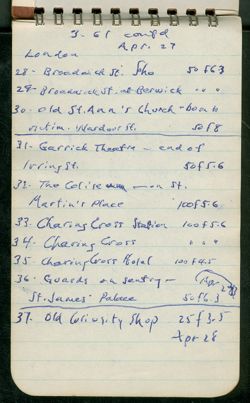 3-61 cont'd
Apr. 27
London
28- Broadwick St. Soho 50 f 6.3
29- Broadwick St. at Berwick " "
30- Old St. Ann's Church - bomb
victim. Wardour St. 50 f 8
31- Garrick Theatre - end of
Irving St. 50 f 5.6
32- The Coliseum - on St.
Martin's Place 100 f 5.6
33- Charing Cross Station 100 f 5.6
34- Charing Cross " "
35- Charing Cross Hotel 100 f 4.5
36- Guards on sentry - Apr 28
St. James' Palace 50 f 6.3
37- Old Curiosity Shop 25 f 3.5
Apr 28